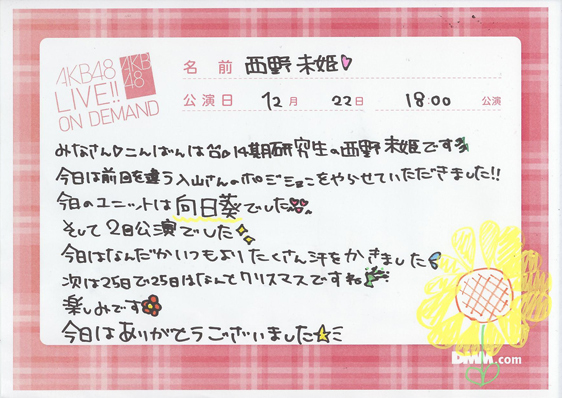 AKB48
LIVE!!
ON DEMAND
AKB
48
名前 西野未姫
公演日 12月 22日 18:00 公演
みなさんこんばんは
14期研究生の西野未姫です
今日は前回と違う入山さんのポジションをやらせていただきました!!
今日のユニットは向日葵でした
そして2回公演でした
今日はなんだかいつもよりたくさん汗をかきました
次は25日で25日はなんとクリスマスですね
楽しみです
今日はありがとうございました
DMM.com